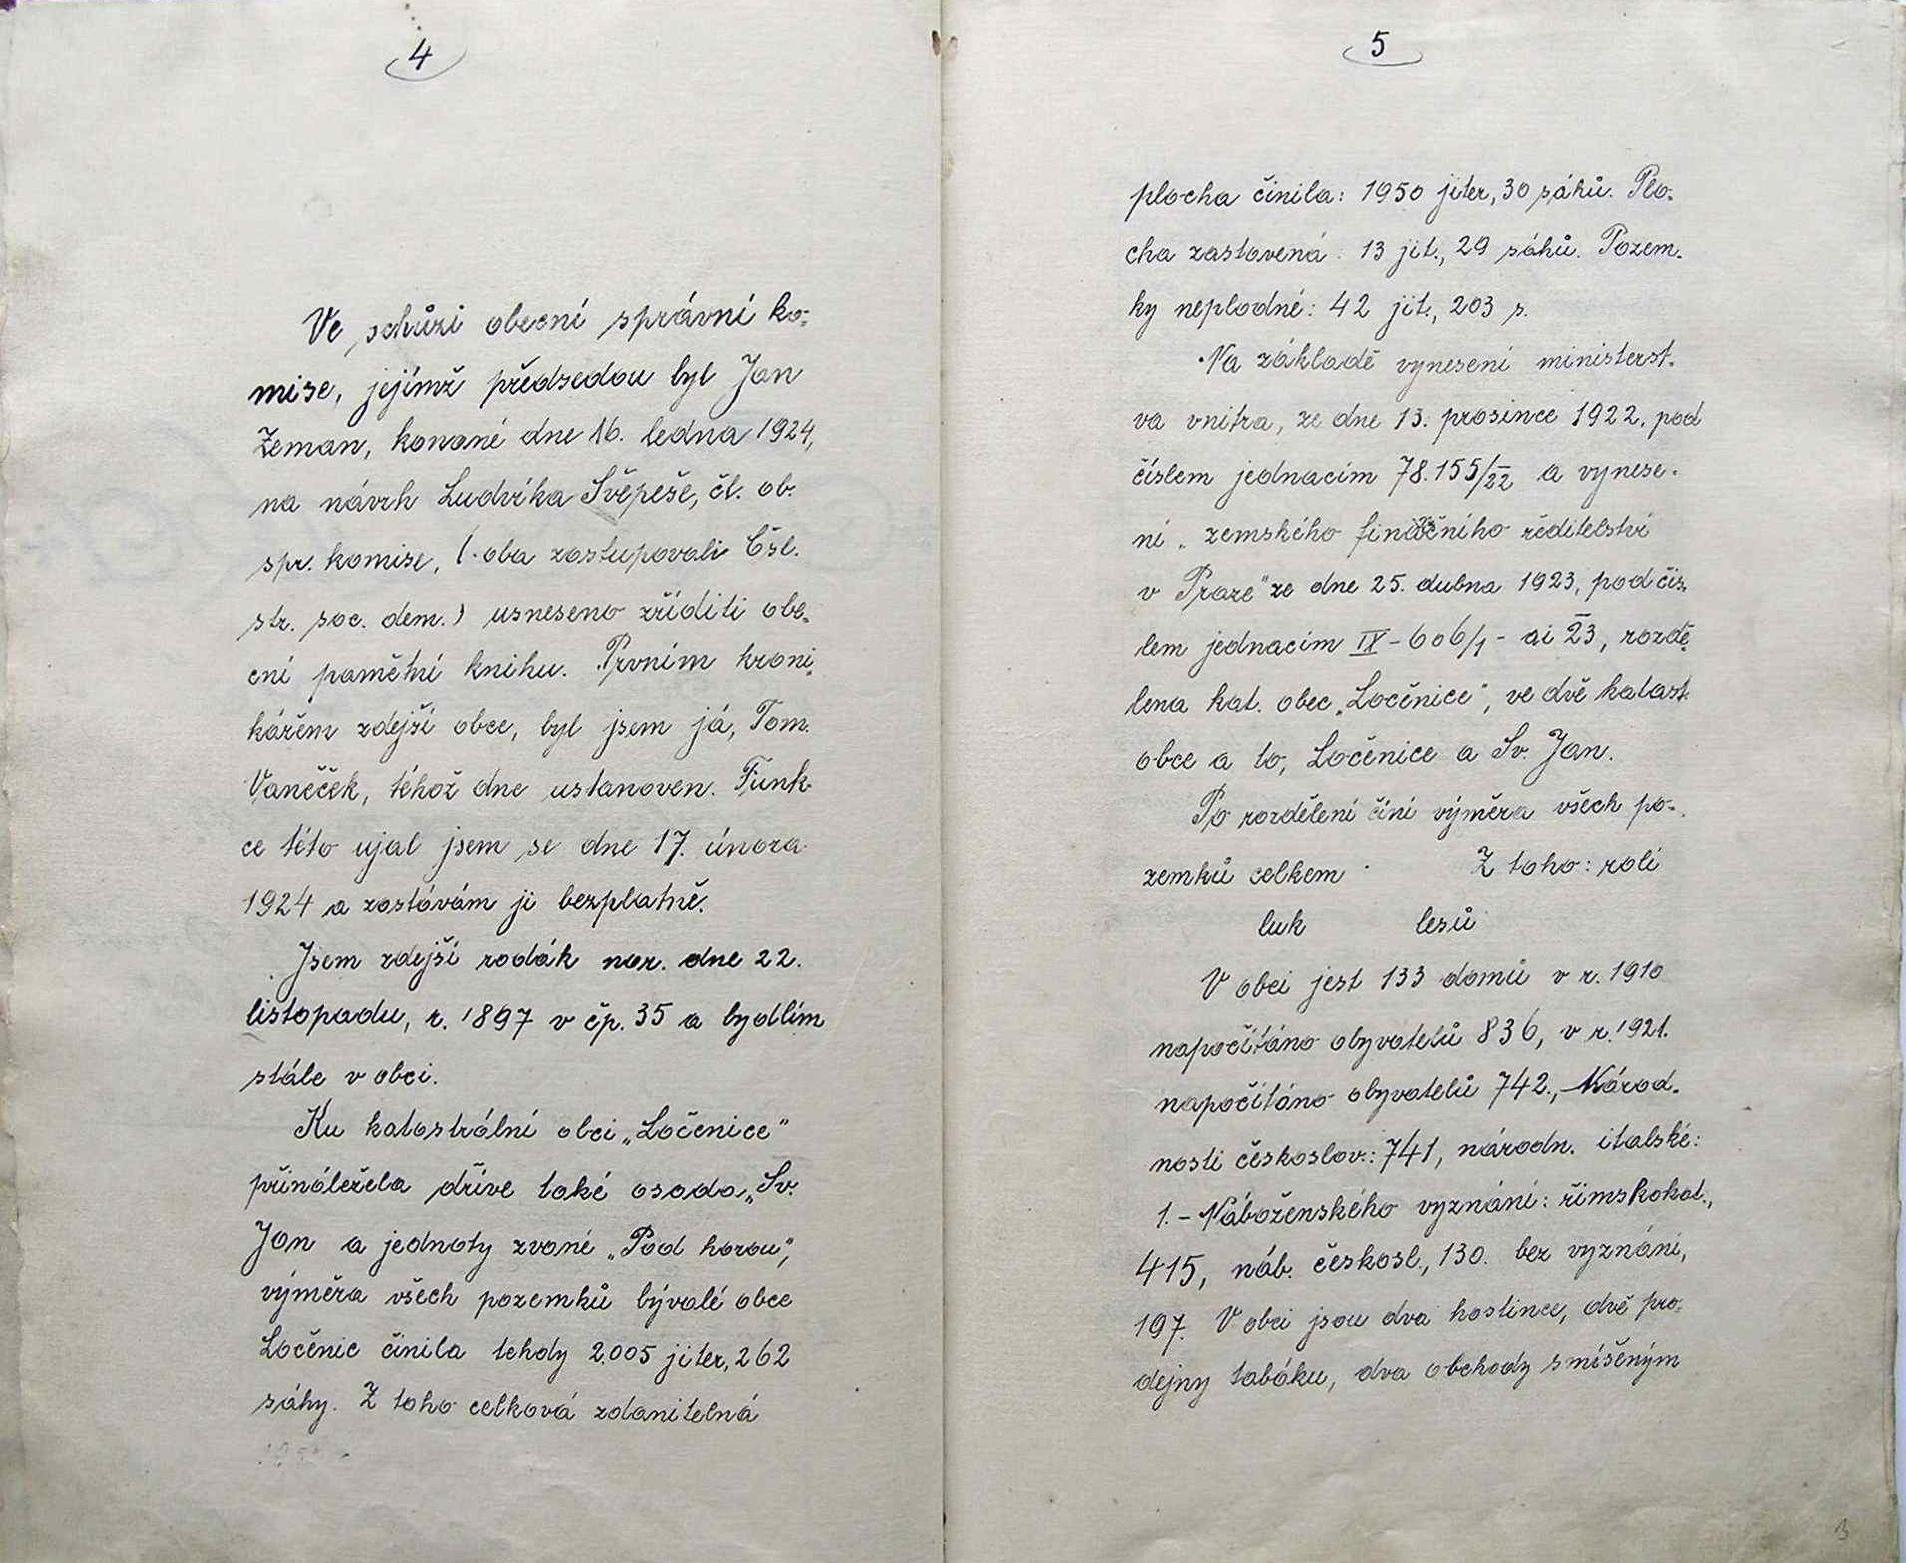 4
Ve schůzi obecní správní ko-
mise, jejímž předsedou byl Jan
Zeman, konané dne 16. ledna 1924,
na návrh Ludvíka Svěpeše, čl. ob.
spr. komise, (oba zastupovali Čsl.
str. soc. dem.) usneseno zříditi obe-
cní pamětní knihu. Prvním kroni-
kářem zdejší obce, byl jsem já, Tom.
Vaněček, téhož dne ustanoven. Funk-
ce této ujal jsem se dne 17. února
1924 a zastávám ji bezplatně.
Jsem zdejší rodák nar. dne 22.
listopadu, r. 1897 v čp. 35 a bydlím
stále v obci.
Ku katastrální obci „Ločenice"
přináležela dříve také osada „Sv.
Jan a jednoty zvané „Pod horou",
výměra všech pozemků bývalé obce
Ločenic činila tehdy 2.005 jiter, 262
sáhy. Z toho celková zdanitelná
5
plocha činila: 1950 jiter, 30 sáhů. Plo-
cha zastavená: 13 jit., 29 sáhů. Pozem-
ky neplodné: 42 jit., 203 s.
Na základě vynesení ministerst-
va vnitra, ze dne 13. prosince 1922, pod
číslem jednacím 78.155/22 a vynese-
ní „zemského finančního ředitelství
v Praze" ze dne 25. dubna 1923, pod čís-
lem jednacím IX-606/1- ai 23, rozdě-
lena kat. obec „Ločenice", ve dvě katast.
obce a to, Ločenice a Sv. Jan.
Po rozdělení činí výměra všech po-
zemků celkem Z toho: rolí
luk lesů
V obci jest 133 domů v r. 1910
napočítáno obyvatelů 836, v r. 1921.
napočítáno obyvatelů 742., Národ-
nosti českoslov.: 741, národn. italské:
1. - Náboženského vyznání: římskokat.,
415, náb. českosl., 130. bez vyznání,
197. V obci jsou dva hostince, dvě pro-
dejny tabáku, dva obchody smíšeným
3